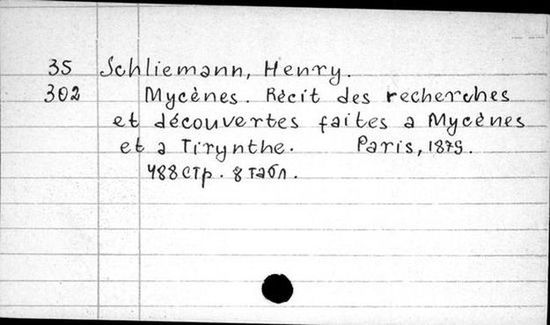 35 Schliemann, Henry.
302 Mycènes. Récit des recherches
et découvertes faites a Mycènes
et a Tirynthe. Paris, 1879.
488 стр. 8 табл.